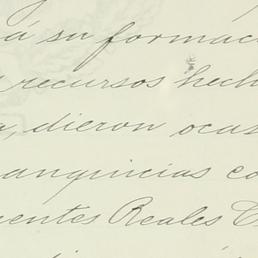 á su formac
recursos hech
a, dieron ocas
anquicias co
entes Reales C